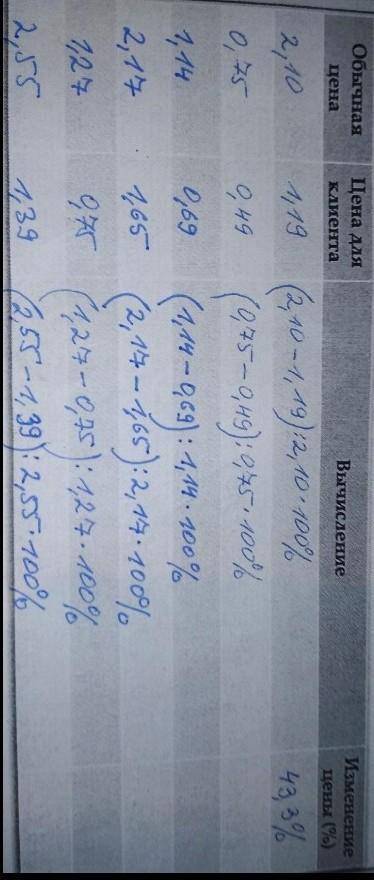 Обычная цена Цена для клиента Вычисление Изменение цены (%)
2,10 1,19 (2,10-1,19):2,10·100% 43,3%
0,75 0,49 (0,75-0,49):0,75·100%
1,14 0,69 (1,14-0,69):1,14·100%
2,17 1,65 (2,17-1,65):2,17·100%
1,27 0,75 (1,27-0,75):1,27·100%
2,55 1,39 (2,55-1,39):2,55·100%